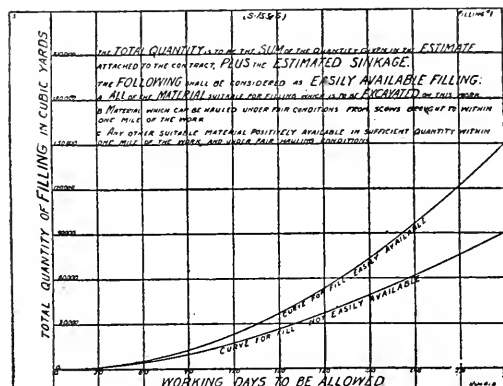 (S-1595)
FILLING #1
THE TOTAL QUANTITY IS TO BE THE SUM OF THE QUANTITIES GIVEN IN THE ESTIMATE
ATTACHED TO THE CONTRACT, PLUS THE ESTIMATED SINKAGE.
THE FOLLOWING SHALL BE CONSIDERED AS EASILY AVAILABLE FILLING:
A ALL OF THE MATERIAL SUITABLE FOR FILLING WHICH IS TO BE EXCAVATED ON THIS WORK
B MATERIAL WHICH CAN BE HAULED UNDER FAIR CONDITIONS FROM SCOWS BROUGHT TO WITHIN
ONE MILE OF THE WORK
C ANY OTHER SUITABLE MATERIAL POSITIVELY AVAILABLE IN SUFFICIENT QUANTITY WITHIN
ONE MILE OF THE WORK, AND UNDER FAIR HAULING CONDITIONS
TOTAL QUANTITY OF FILLING IN CUBIC YARDS
CURVE FOR FILL EASILY AVAILABLE
CURVE FOR FILL NOT EASILY AVAILABLE
0
WORKING DAYS TO BE ALLOWED